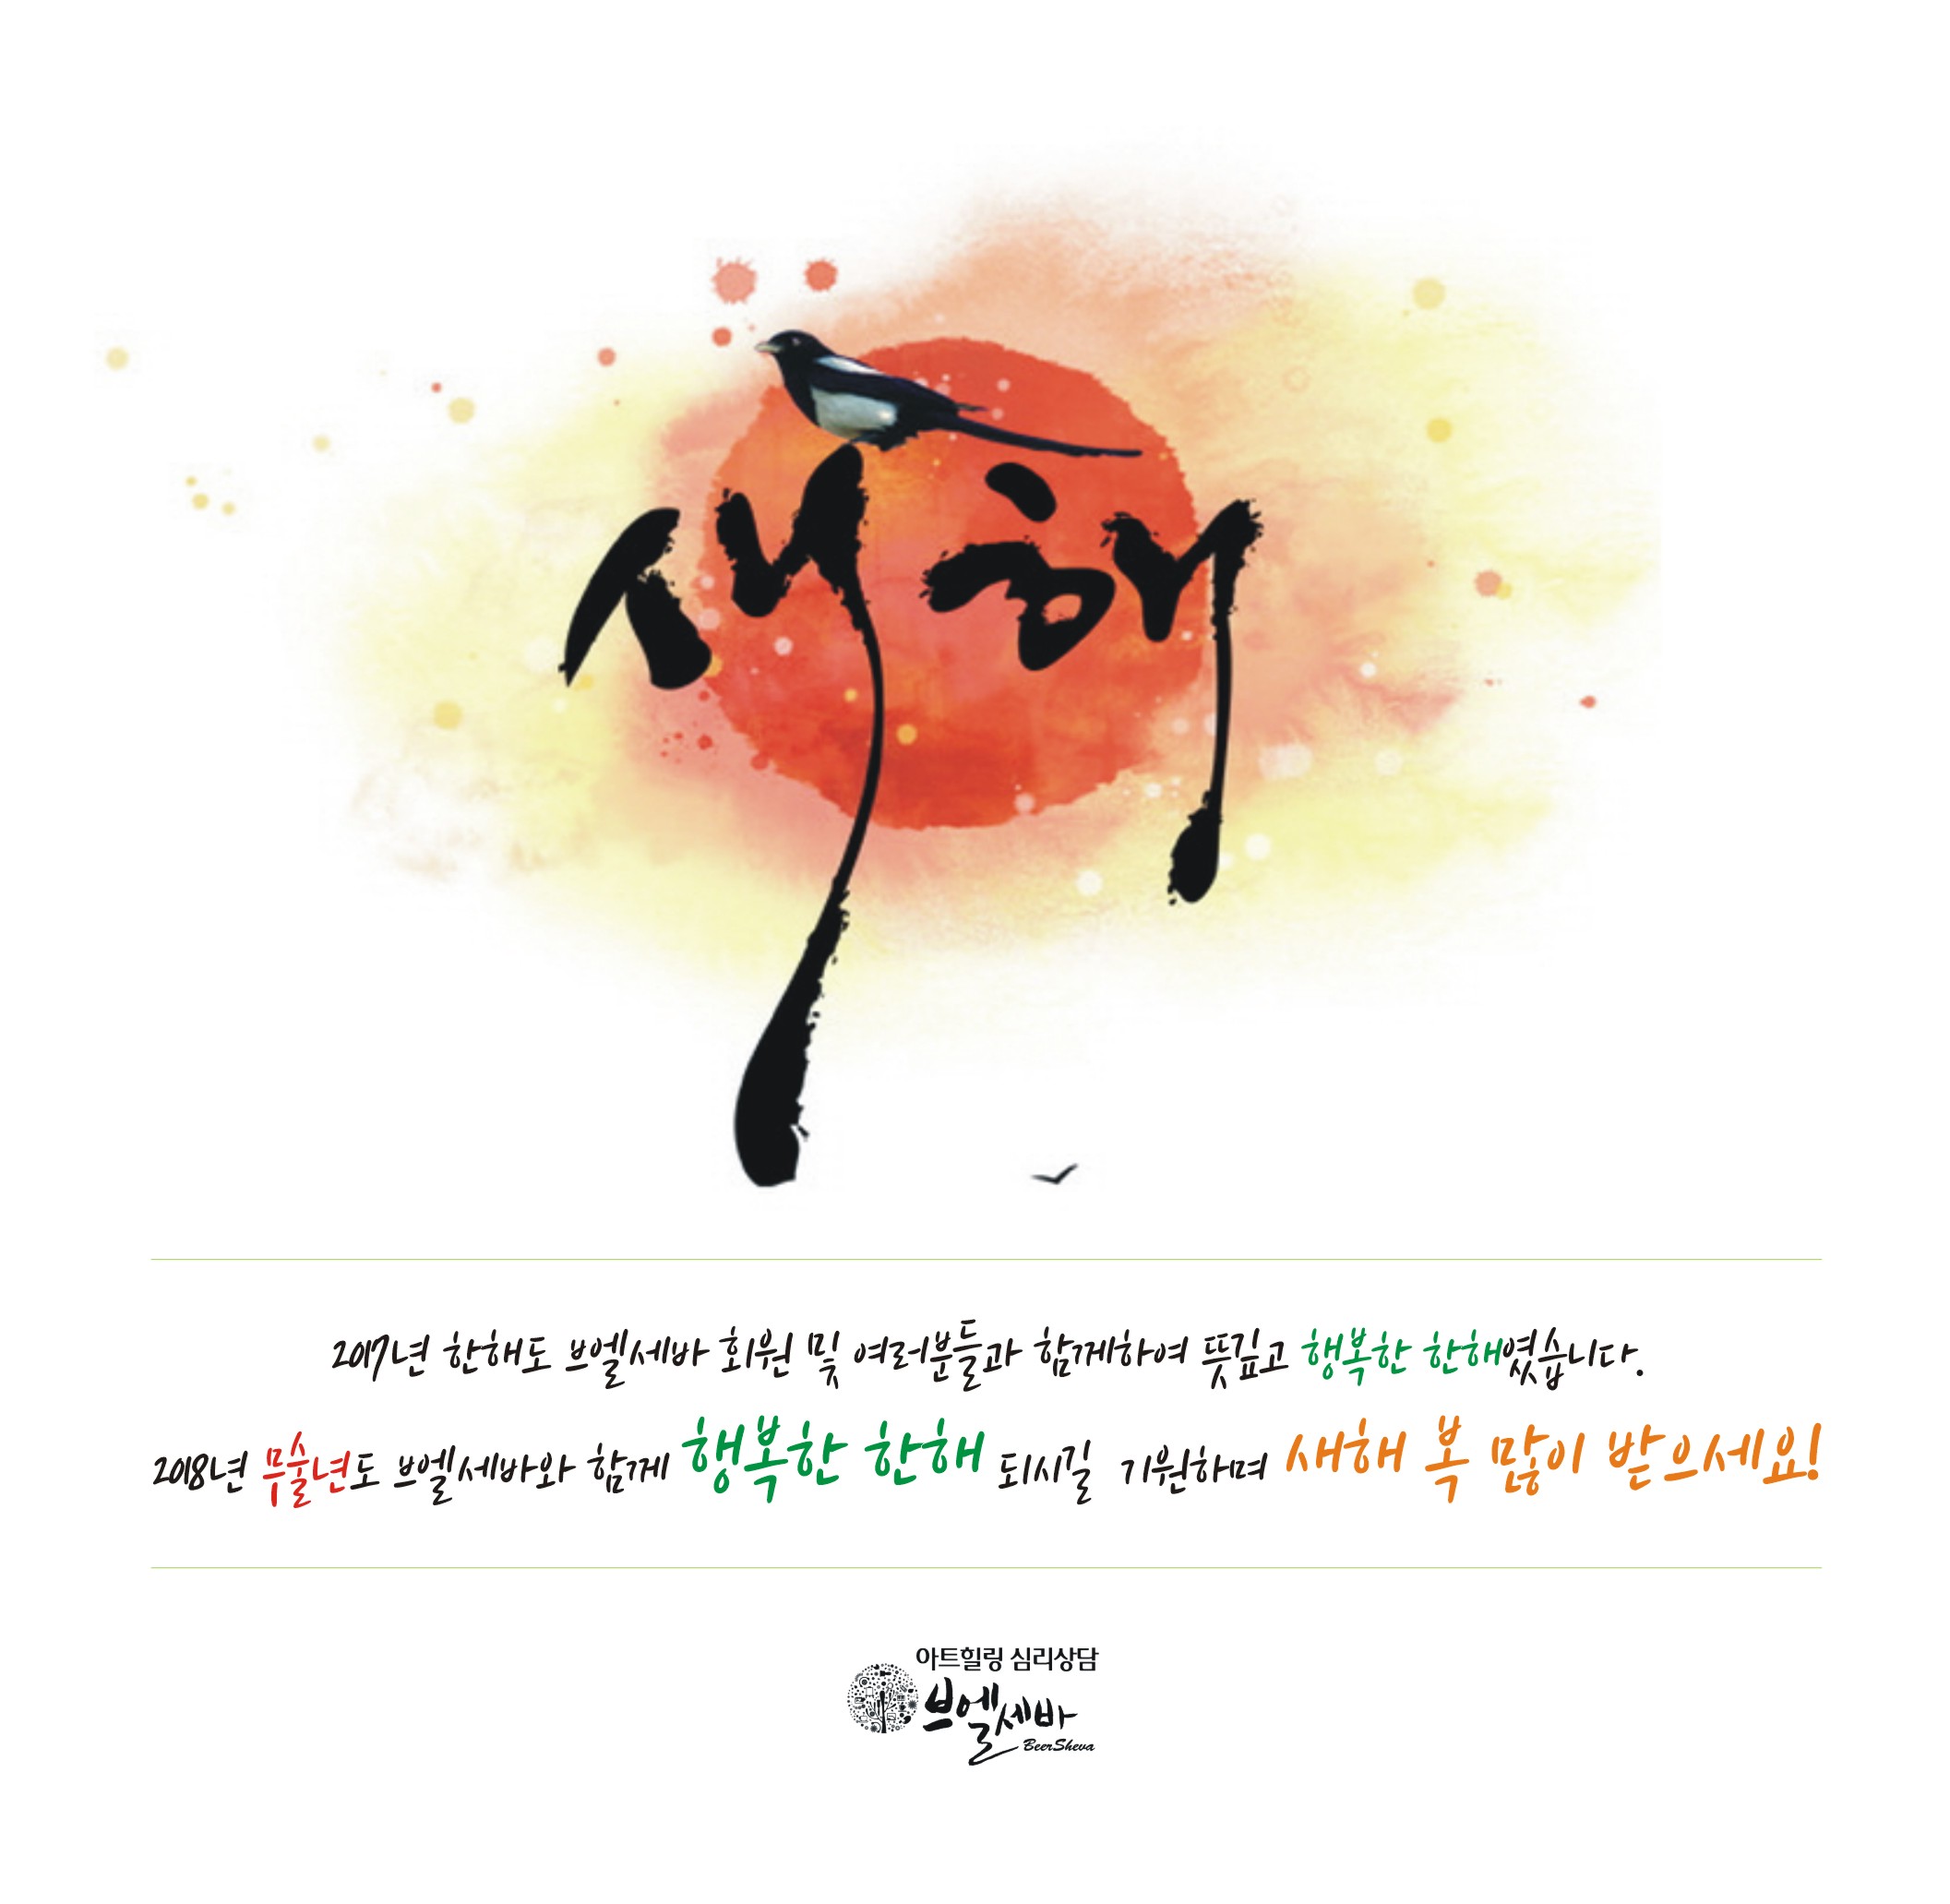 새해
2017년 한해도 브엘세바 회원 및 여러분들과 함께하여 뜻깊고 행복한 한해였습니다.
2018년 무술년도 브엘세바와 함께 행복한 한해 되시길 기원하며 새해 복 많이 받으세요!
아트힐링 심리상담
브엘세바
BeerSheva